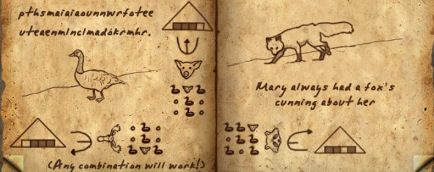 pthsmaiaiaounnwrfotee
uteaenmlnclmadókrmhr.
(Any combination will work!)
Mary always had a fox's
cunning about her